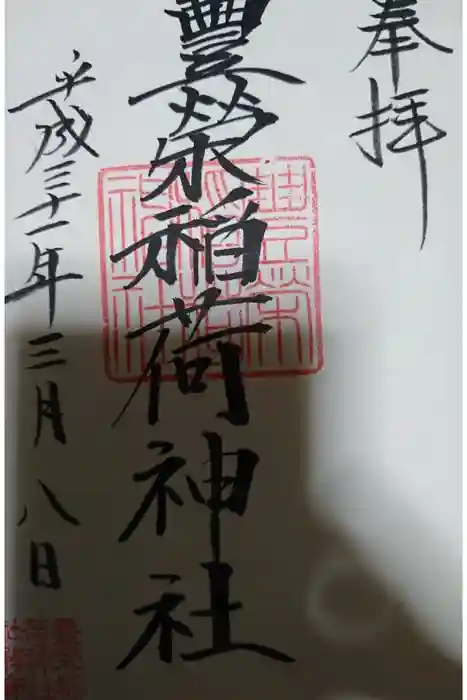 奉拝
豊榮稲荷神社
平成三十一年三月八日